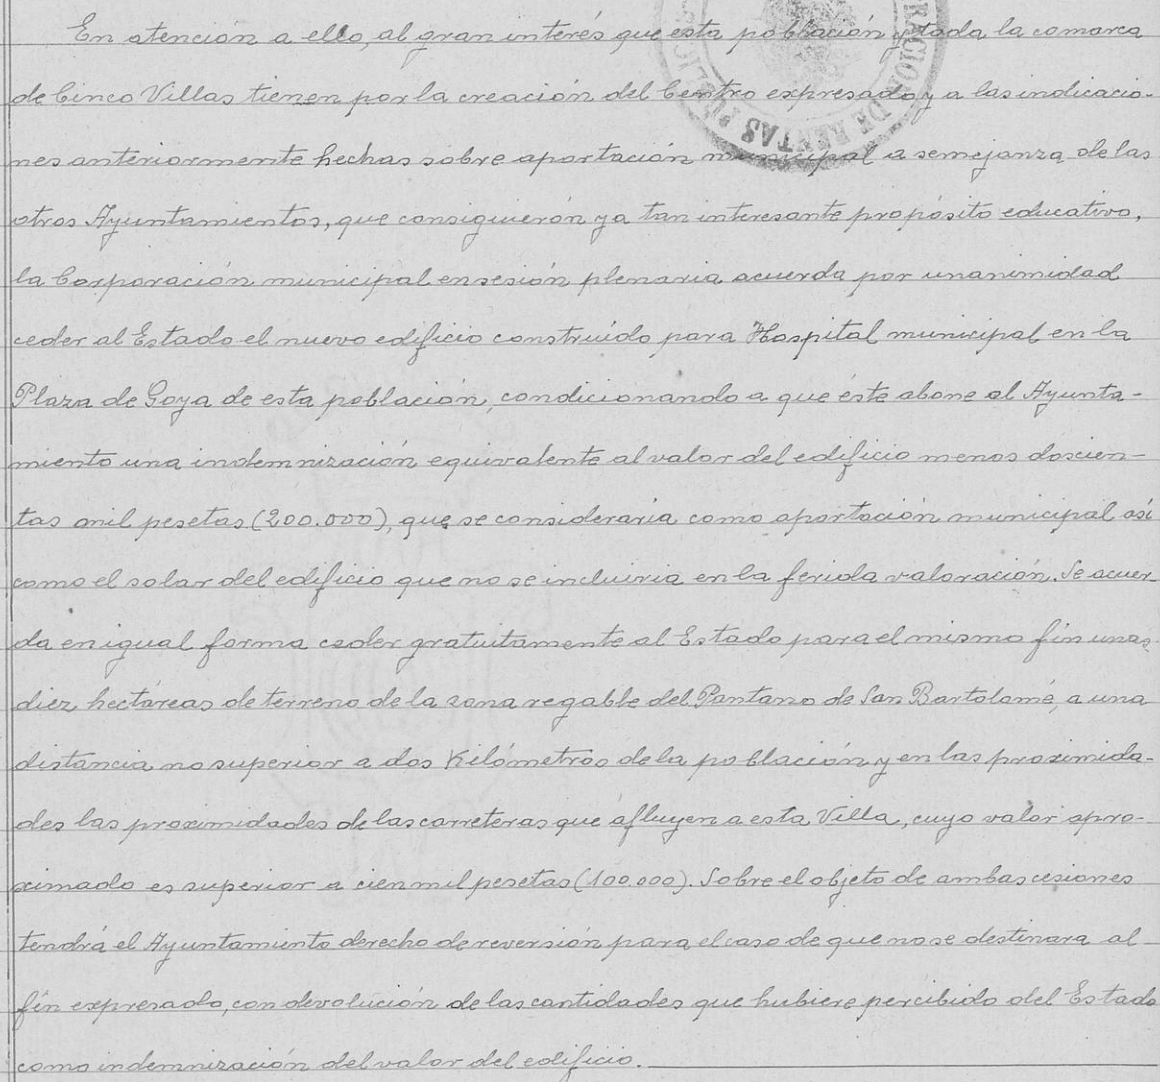 En atención a ello, al gran interés que esta población y toda la comarca
de Cinco Villas tienen por la creación del Centro expresado y a las indicacio-
nes anteriormente hechas sobre aportación municipal a semejanza de las
otros Ayuntamientos, que consiguierón ya tan interesante propósito educativo,
la Corporación municipal en sesión plenaria acuerda por unanimidad
ceder al Estado el nuevo edificio construído para Hospital municipal en la
Plaza de Goya de esta población, condicionando a que éste abone al Ayunta-
miento una indemnización equivalente al valor del edificio menos doscien-
tas mil pesetas (200.000), que se consideraria como aportación municipal asi
como el solar del edificio que no se incluiria en la ferida valoración. Se acuer-
da en igual forma ceder gratuitamente al Estado para el mismo fin unas
diez hectáreas de terreno de la zona regable del Pantano de San Bartolomé, a una
distancia no superior a dos Kilómetros de la población y en las proximida-
des las proximidades de las carreteras que afluyen a esta Villa, cuyo valor apro-
ximado es superior a cien mil pesetas (100.000). Sobre el objeto de ambas cesiones
tendrá el Ayuntamiento derecho de reversión para el caso de que no se destinara al
fin expresado, con devolución de las cantidades que hubiere percibido del Estado
como indemnización del valor del edificio.
RACION DE RENTAS PÚBLICAS